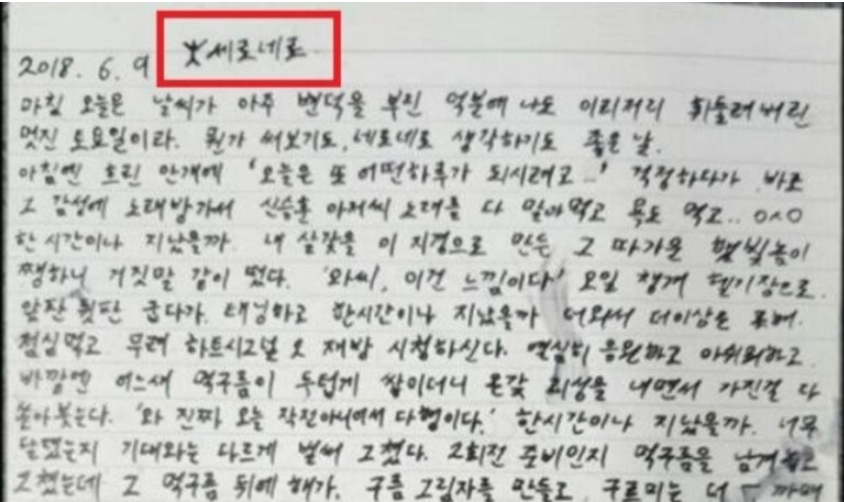 ★세로네로
2018. 6. 9
마침 오늘은 날씨가 아주 변덕을 부린 덕분에 나도 이리저리 휘둘려버린
멋진 토요일이라. 뭔가 써보기도, 네로네로 생각하기도 좋은 날.
아침엔 흐린 안개에 '오늘은 또 어떤하루가 되시려고...' 걱정하다가 바로
그 감성에 노래방가서 신승훈 아저씨 노래를 다 말아먹고 욕도 먹고.. 0^0
한 시간이나 지났을까. 내 살갗을 이 지경으로 만든 그 따가운 햇빛놈이
쨍하니 거짓말 같이 떴다. '와씨, 이건 느낌이다!' 오일 챙겨 헬기장으로.
앞판 뒷판 굽다가. 태닝하고 한시간이나 지났을까 더와서 더이상은 못해.
점심먹고 무려 하트시그널 2 재방 시청하신다. 열심히 응원하고 아쉬워하고
바깥엔 어느새 먹구름이 두텁게 쌓이더니 온갖 괴성을 내면서 가진걸 다
쏟아붓는다. '와 진짜 오늘 작전아니여서 다행이다.' 한시간이나 지났을까. 너무
달랬는지 기대와는 다르게 벌써 그쳤다. 2회전 준비인지 먹구름을 남겨
그쳤는데 그 먹구름 뒤에 해가. 구름 그림자를 만들고 구르미는 더